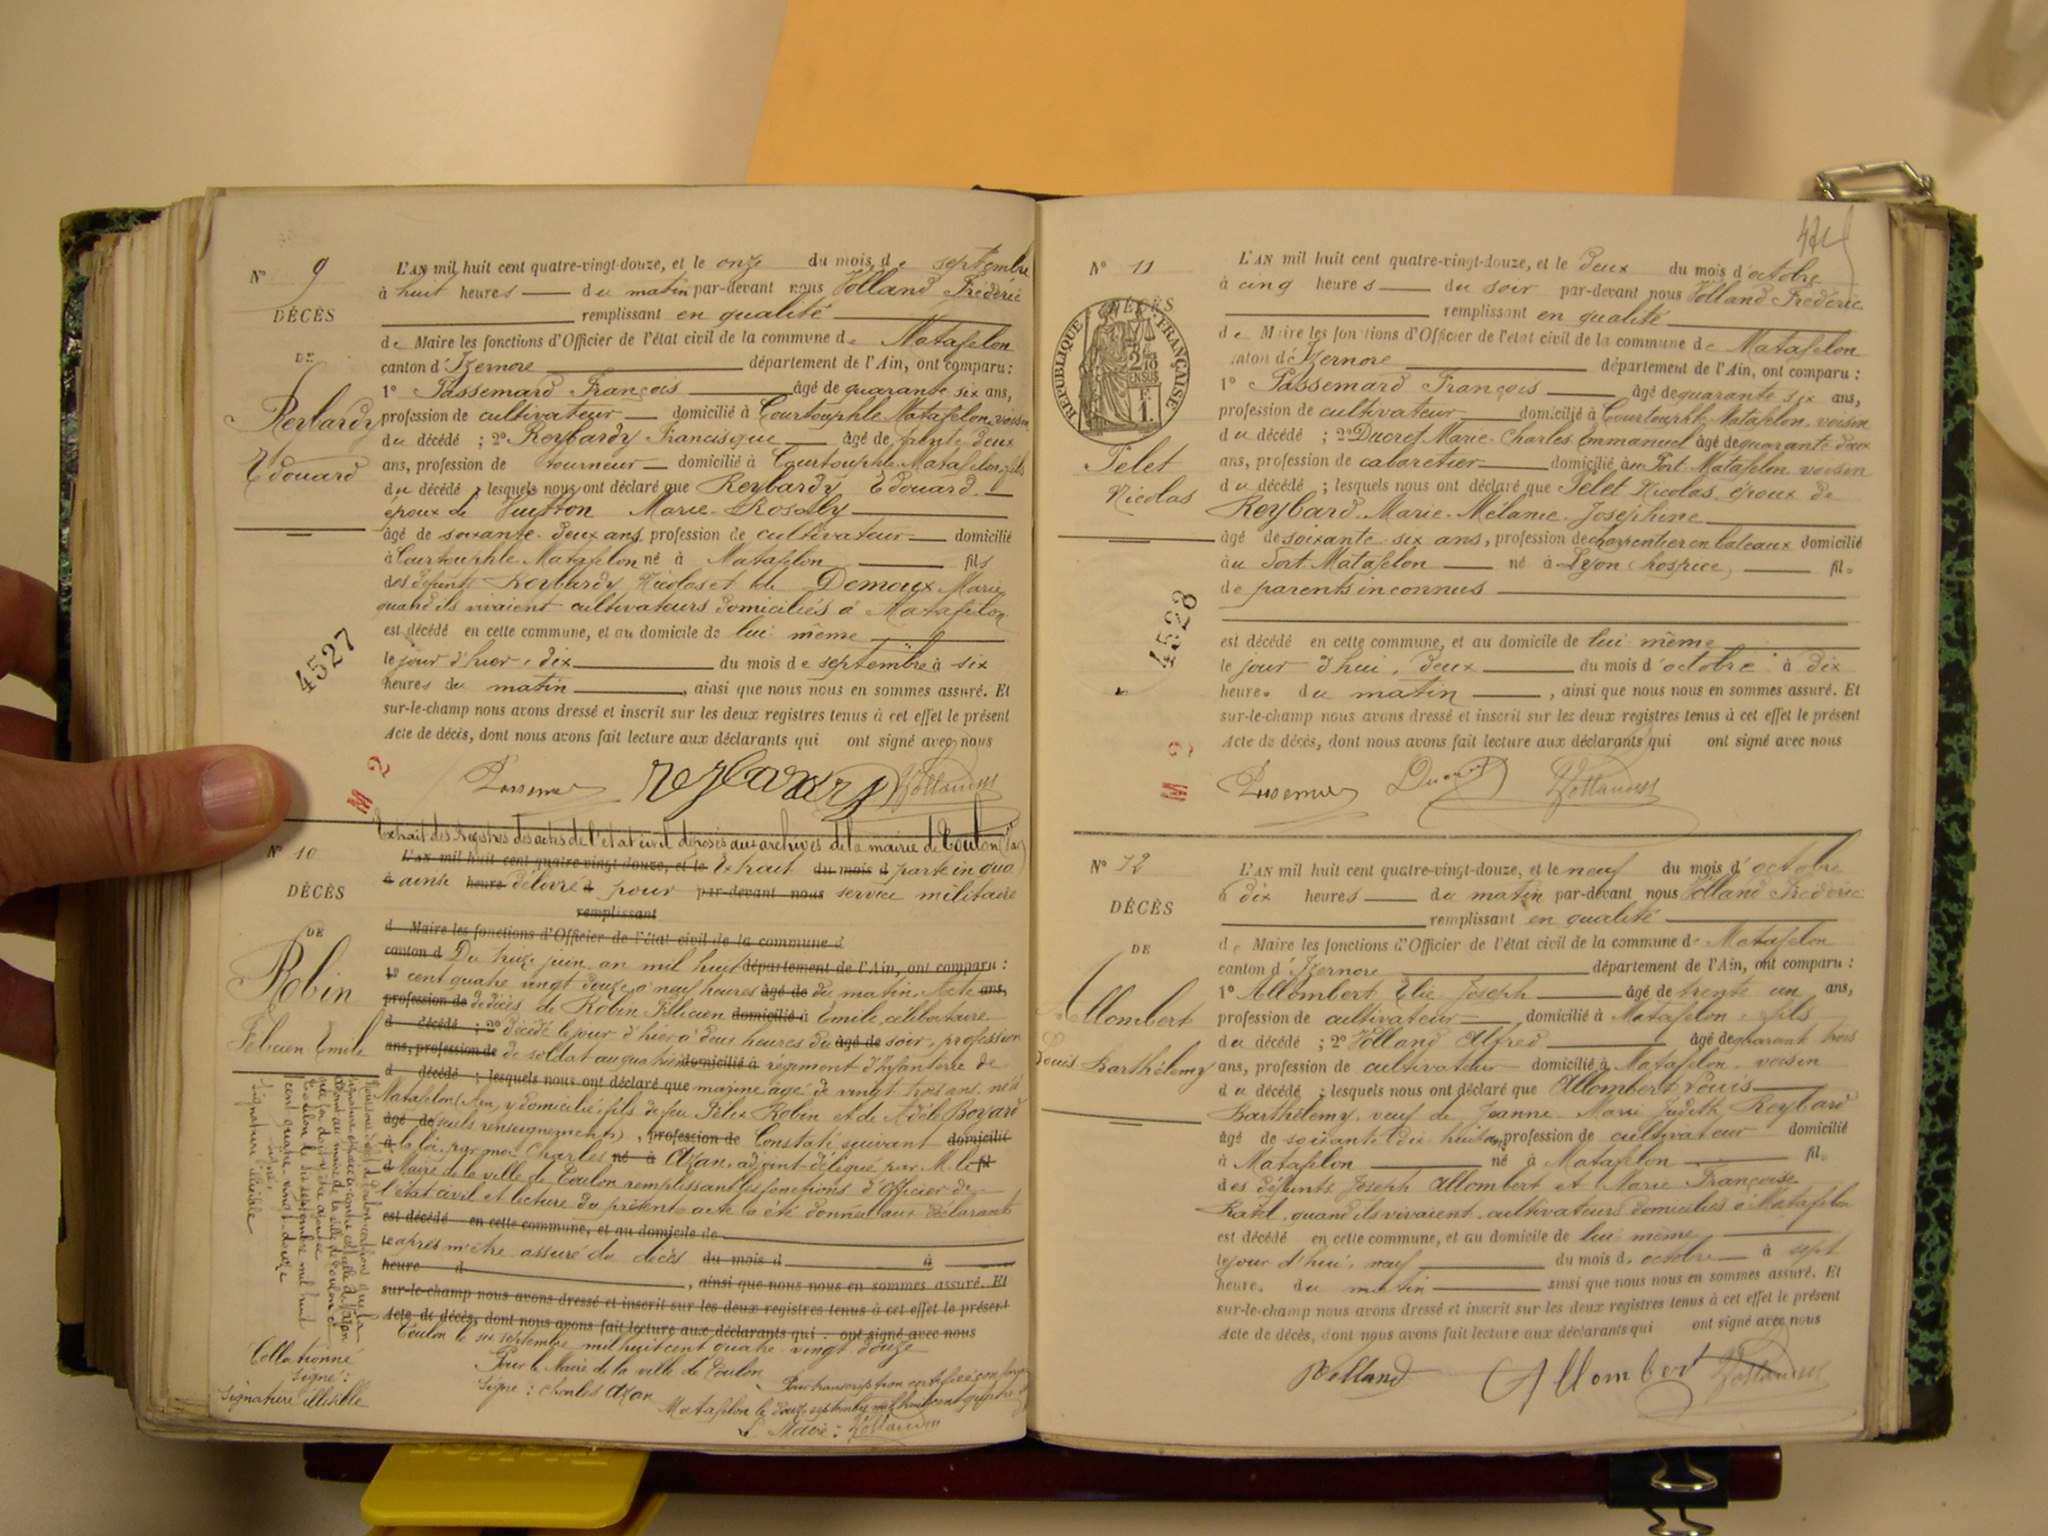 N° 9
DÉCÈS
DE
Reybardy
Edouard
4527
M 2
L'AN mil huit cent quatre-vingt-douze, et le onze du mois de septembre
à huit heures du matin par-devant nous Volland Frédéric
remplissant en qualité
de Maire les fonctions d'Officier de l'état civil de la commune de Matafelon
canton d'Izernore département de l'Ain, ont comparu :
1° Passemard François âgé de quarante six ans,
profession de cultivateur domicilié à Courtouphle Matafelon, voisin
du décédé ; 2° Reybardy Francisque âgé de trente deux
ans, profession de tourneur domicilié à Courtouphle Matafelon, fils
du décédé ; lesquels nous ont déclaré que Reybardy Edouard
époux de Marie-Rosaly
âgé de soixante-deux ans profession de cultivateur domicilié
à Courtouphle Matafelon né à Matafelon fils
des défunts Reybardy Nicolas et de Demoux Marie
quand ils vivaient cultivateurs domiciliés à Matafelon
est décédé en cette commune, et au domicile de lui-même
le jour d'hier, dix du mois de septembre à six
heures du matin, ainsi que nous nous en sommes assuré. Et
sur-le-champ nous avons dressé et inscrit sur les deux registres tenus à cet effet le présent
Acte de décès, dont nous avons fait lecture aux déclarants qui ont signé avec nous
Reybardy Vollandus
N° 10
DÉCÈS
DE
Robin
Félicien Emile
Collationné
Signé :
Signature illisible
Extrait des Registres des actes de l'état civil déposés aux archives de la mairie de Toulon (Var)
L'AN mil huit cent quatre-vingt-douze, et le Extrait du mois d parte in qua
à ainsi heure délivré à pour par-devant nous service militaire
remplissant
d Maire les fonctions d'Officier de l'état civil de la commune d
canton d Du treize juin an mil huit département de l'Ain, ont comparu :
1° cent quatre vingt douze, à neuf heures âgé de du matin. Acte ans,
profession de de décès de Robin Félicien domicilié à Emile, célibataire
d décédé ; 2° décédé le jour d'hier à deux heures du âgé de soir, profession
ans, profession de de soldat au quatrième domicilié à régiment d'Infanterie de
d décédé ; lesquels nous ont déclaré que marine âgé de vingt trois ans, né à
Matafelon (Ain) y domicilié, fils de feu Félix Robin et de Adèle Bovard
âgé de (seuls renseignements), profession de Constaté suivant domicilié
à la loi, par moi Charles né à Azan, adjoint délégué par M. le fil
d Maire de la ville de Toulon remplissant les fonctions d'Officier de
l'état civil et lecture du présent acte a été donnée aux déclarants
est décédé en cette commune, et au domicile de
le après m'être assuré du décès du mois d à
heure d , ainsi que nous nous en sommes assuré. Et
sur-le-champ nous avons dressé et inscrit sur les deux registres tenus à cet effet le présent
Acte de décès, dont nous avons fait lecture aux déclarants qui ont signé avec nous
Toulon le six septembre mil huit cent quatre-vingt douze
Pour le Maire de la ville de Toulon
Signé : Charles Azan
Pour transcription certifiée conforme
Matafelon le douze septembre mil huit cent quatre
Le Maire : Vollandus
N° 11
DÉCÈS
RÉPUBLIQUE FRANÇAISE
Pelet
Nicolas
4528
M 2
L'AN mil huit cent quatre-vingt-douze, et le deux du mois d'octobre
à cinq heures du soir par-devant nous Volland Frédéric
remplissant en qualité
de Maire les fonctions d'Officier de l'état civil de la commune de Matafelon
canton d'Izernore département de l'Ain, ont comparu :
1° Passemard François âgé de quarante six ans,
profession de cultivateur domicilié à Courtouphle Matafelon, voisin
du décédé ; 2° Ducret Marie-Charles Emmanuel âgé de quarante deux
ans, profession de cabaretier domicilié au Port Matafelon voisin
du décédé ; lesquels nous ont déclaré que Pelet Nicolas époux de
Reybard Marie-Mélanie-Joséphine
âgé de soixante-six ans, profession de charpentier en bateaux domicilié
au Port Matafelon né à Lyon (hospice) fil
de parents inconnus
est décédé en cette commune, et au domicile de lui-même
le jour d'hui, deux du mois d'octobre à dix
heures du matin, ainsi que nous nous en sommes assuré. Et
sur-le-champ nous avons dressé et inscrit sur les deux registres tenus à cet effet le présent
Acte de décès, dont nous avons fait lecture aux déclarants qui ont signé avec nous
Ducret Vollandus
N° 12
DÉCÈS
DE
Allombert
Louis Barthélemy
L'AN mil huit cent quatre-vingt-douze, et le neuf du mois d'octobre
à dix heures du matin par-devant nous Volland Frédéric
remplissant en qualité
de Maire les fonctions d'Officier de l'état civil de la commune de Matafelon
canton d'Izernore département de l'Ain, ont comparu :
1° Allombert Elie Joseph âgé de trente un ans,
profession de cultivateur domicilié à Matafelon, fils
du décédé ; 2° Volland Alfred âgé de quarante trois
ans, profession de cultivateur domicilié à Matafelon, voisin
du décédé ; lesquels nous ont déclaré que Allombert Louis
Barthélemy, veuf de Jeanne-Marie Judith Reybard
âgé de soixante dix huit ans profession de cultivateur domicilié
à Matafelon né à Matafelon fil
des défunts Joseph Allombert et Marie Françoise
quand ils vivaient cultivateurs domiciliés à Matafelon
est décédé en cette commune, et au domicile de lui-même
le jour d'hui, neuf du mois d'octobre à sept
heures du matin ainsi que nous nous en sommes assuré. Et
sur-le-champ nous avons dressé et inscrit sur les deux registres tenus à cet effet le présent
Acte de décès, dont nous avons fait lecture aux déclarants qui ont signé avec nous
Volland Allombert Vollandus